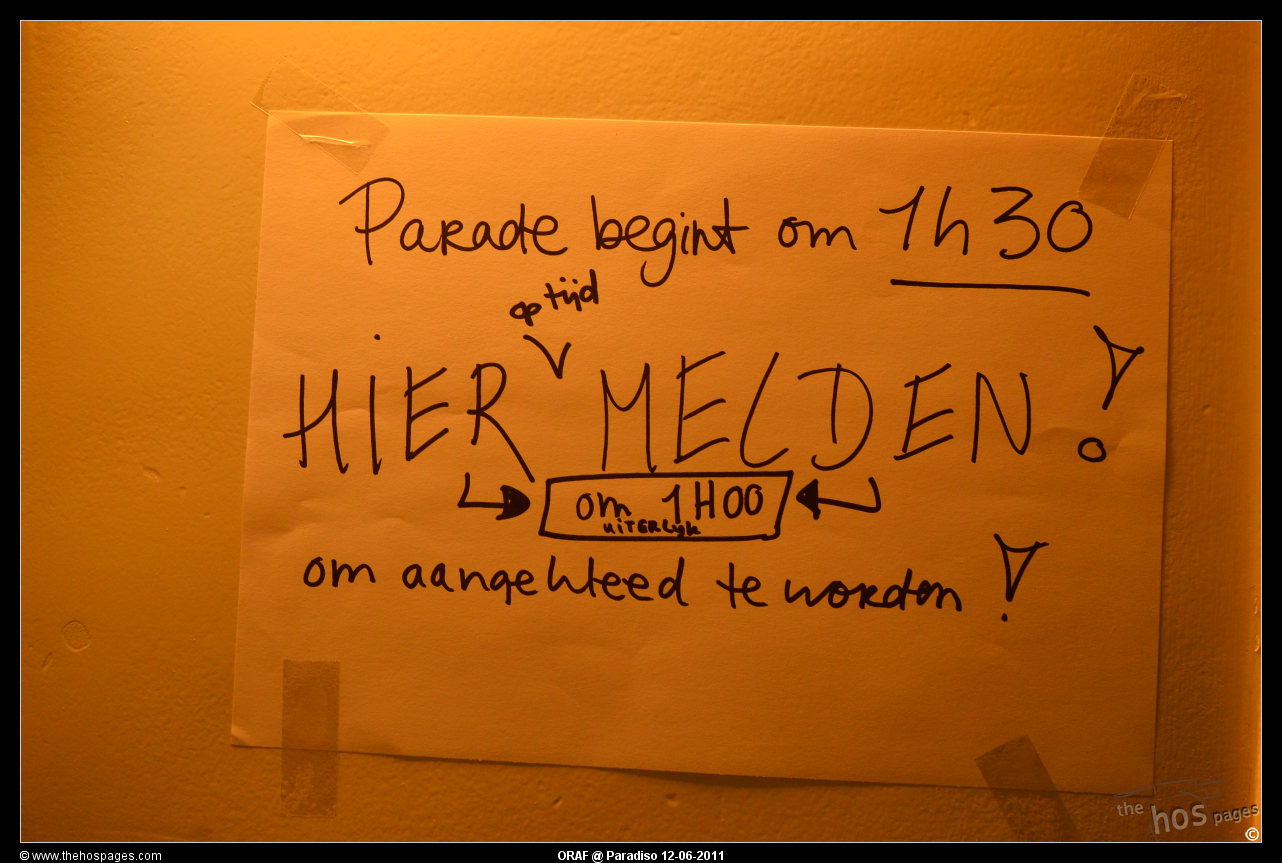 Parade begint om 1h30
op tijd
HiER MELDEN!
om 1H00
uiTERLijk
om aangekleed te worden!
the hos pages
©
© www.thehospages.com
ORAF @ Paradiso 12-06-2011